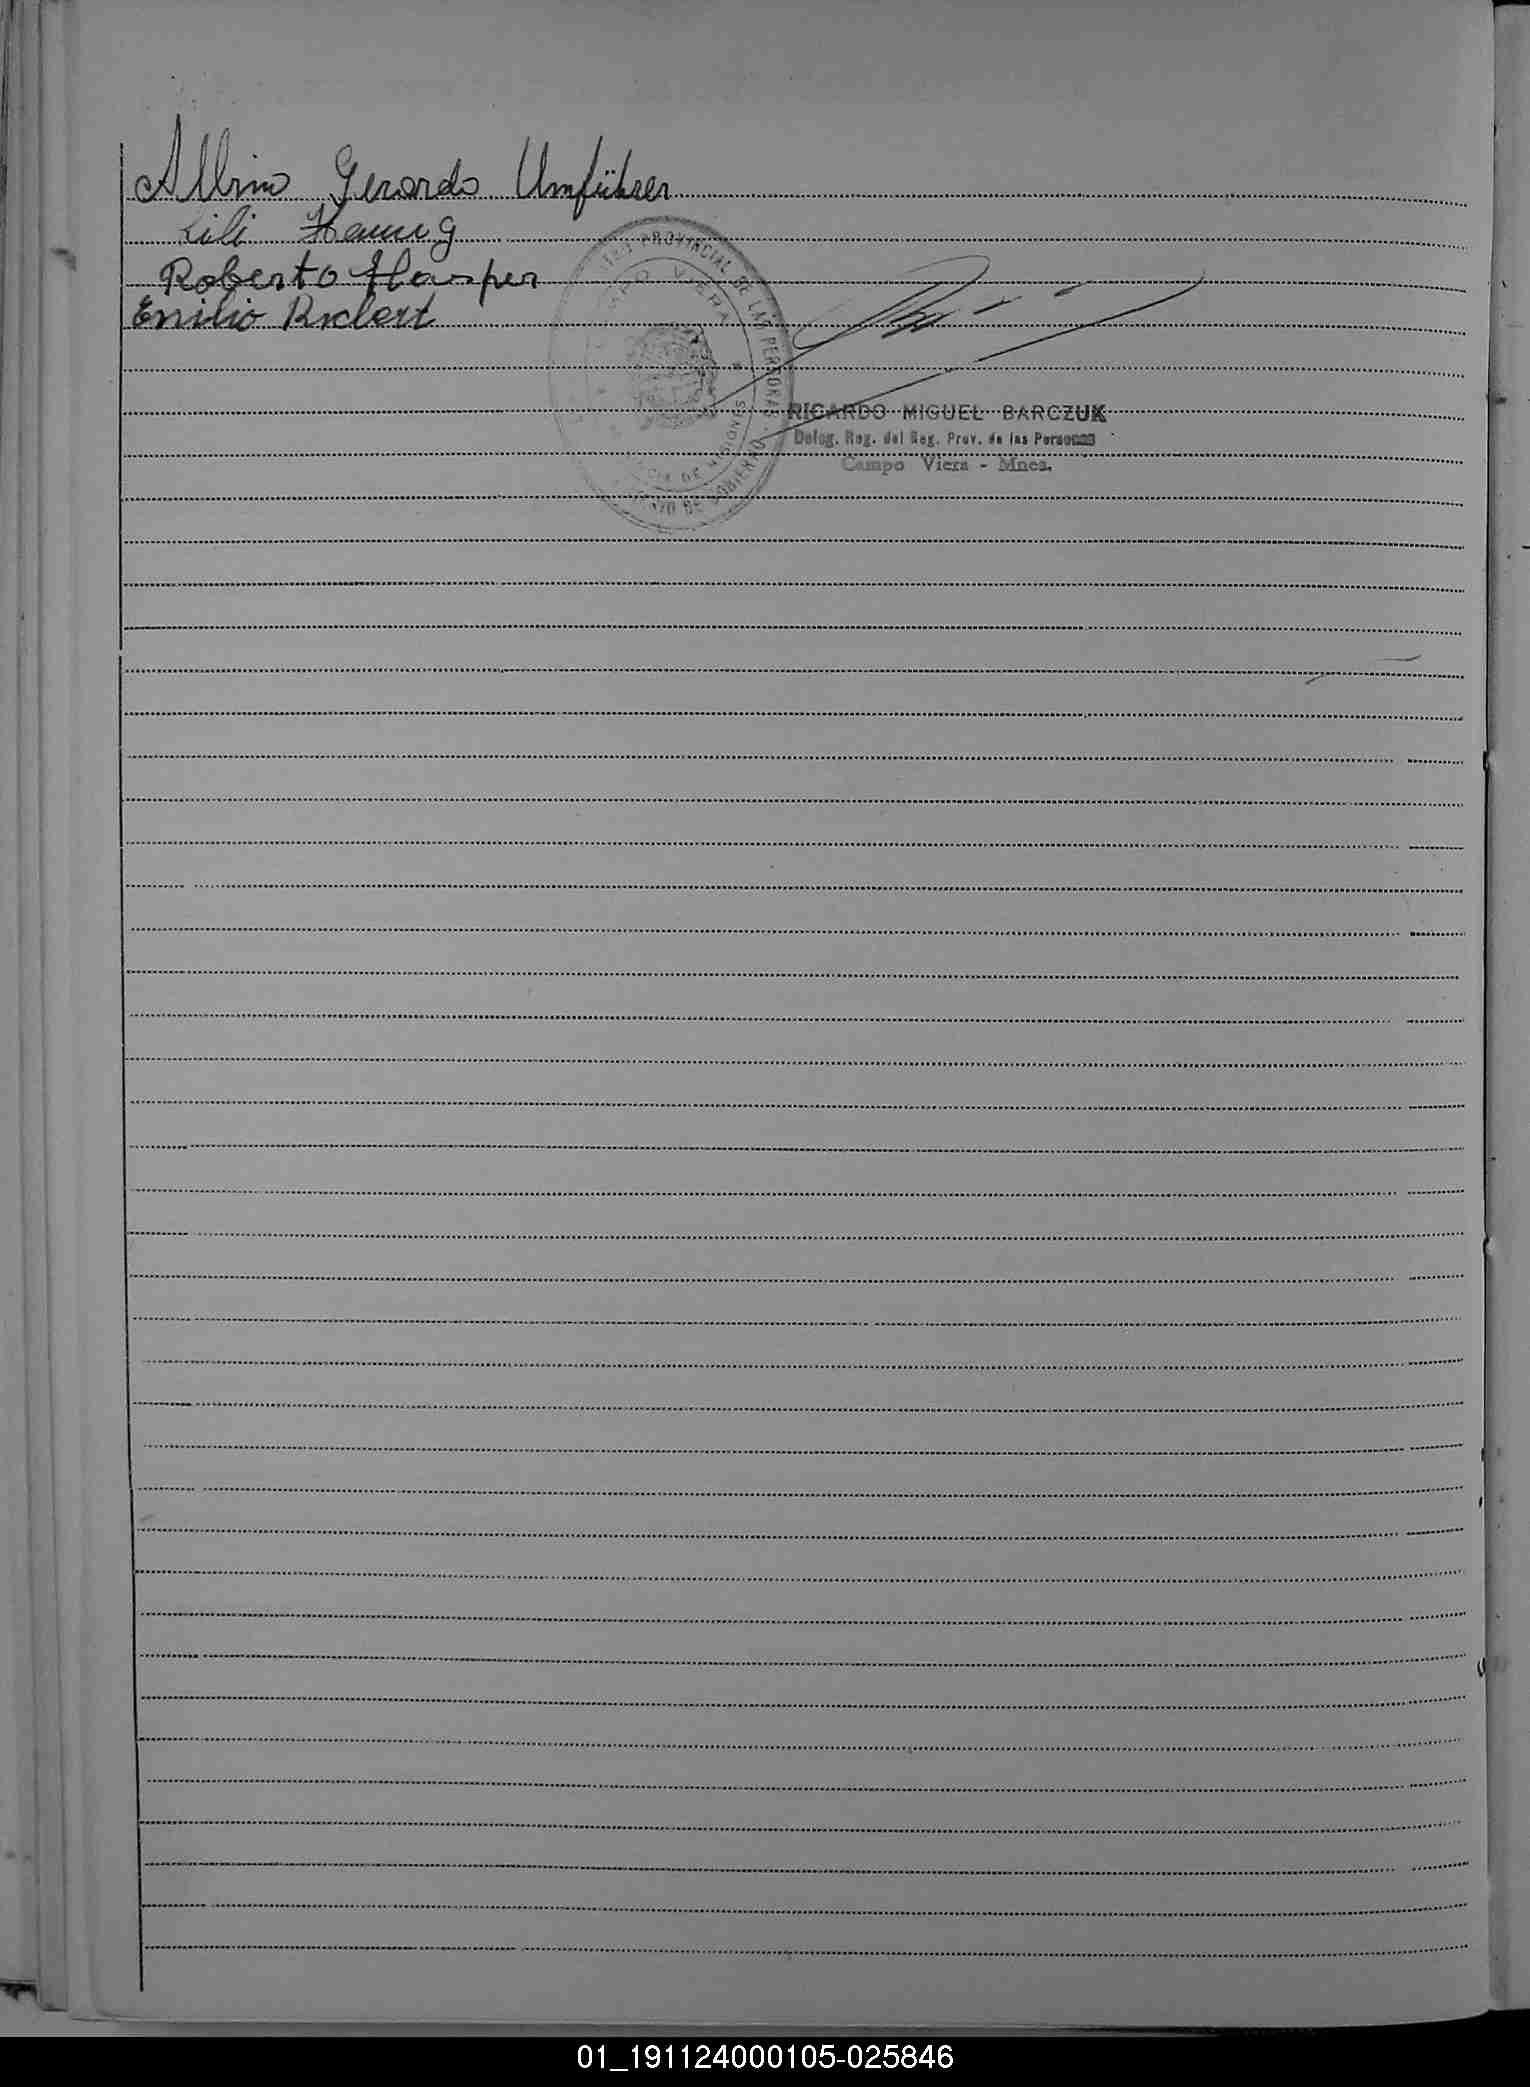 Albino Gerardo Umführer
Lili Hanug
Roberto Hasper
Emilio Richert
PROVINCIAL DE LAS PERSONAS
CAMPO VIERA
DE MISIONES
DE GOBIERNO
RICARDO MIGUEL BARCZUK
Deleg. Reg. del Reg. Prov. de las Personas
Campo Viera - Mnes.
01_191124000105-025846